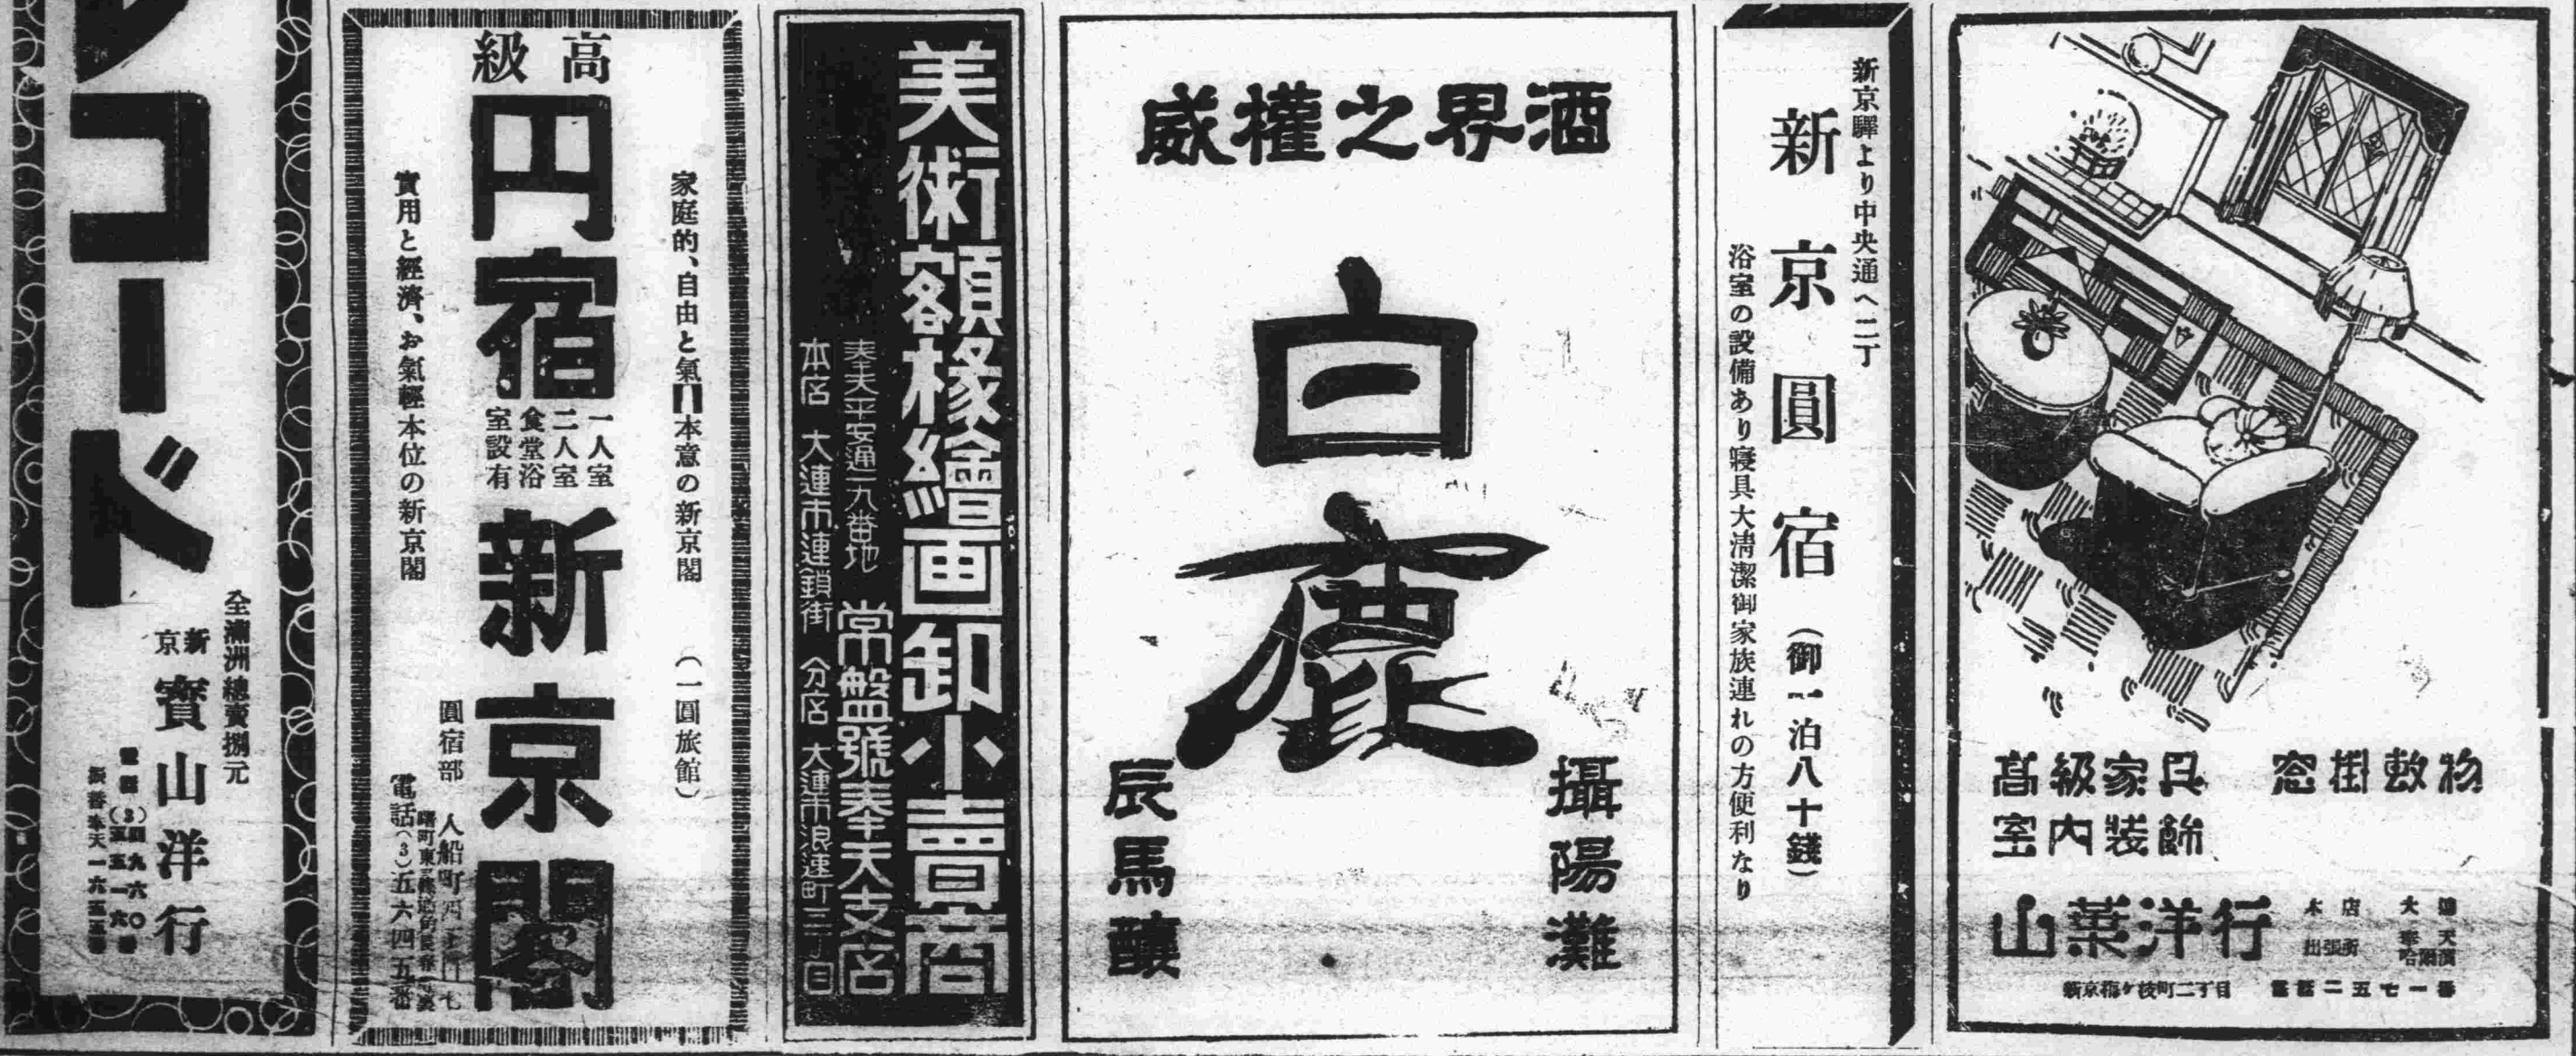 高級家具
窓掛敷物
室内装飾
山葉洋行
本店
大連
出張所
奉天
哈爾濱
新京梅ケ枝町二丁目
電話二五七一番
新京驛より中央通へ二丁
新京圓宿
(御一泊八十錢)
浴室の設備あり寝具大清潔御家族連れの方便利なり
酒界之權威
白鹿
攝陽灘
辰馬釀
美術額椽繪画卸小賣商
奉天平安通一九番地
常盤號奉天支店
本店 大連市連鎖街
分店 大連市浪速町三丁目
高級
家庭的、自由と氣
本意の新京閣
(一圓旅館)
円宿
一人室
二人室
食堂浴
室設有
新京閣
實用と經濟、お氣輕本位の新京閣
圓宿部
入船町四丁目
電話(3)五六四五番
レコード
全滿洲總賣捌元
新京
寳山洋行
電話(3)
振替奉天一六五五番